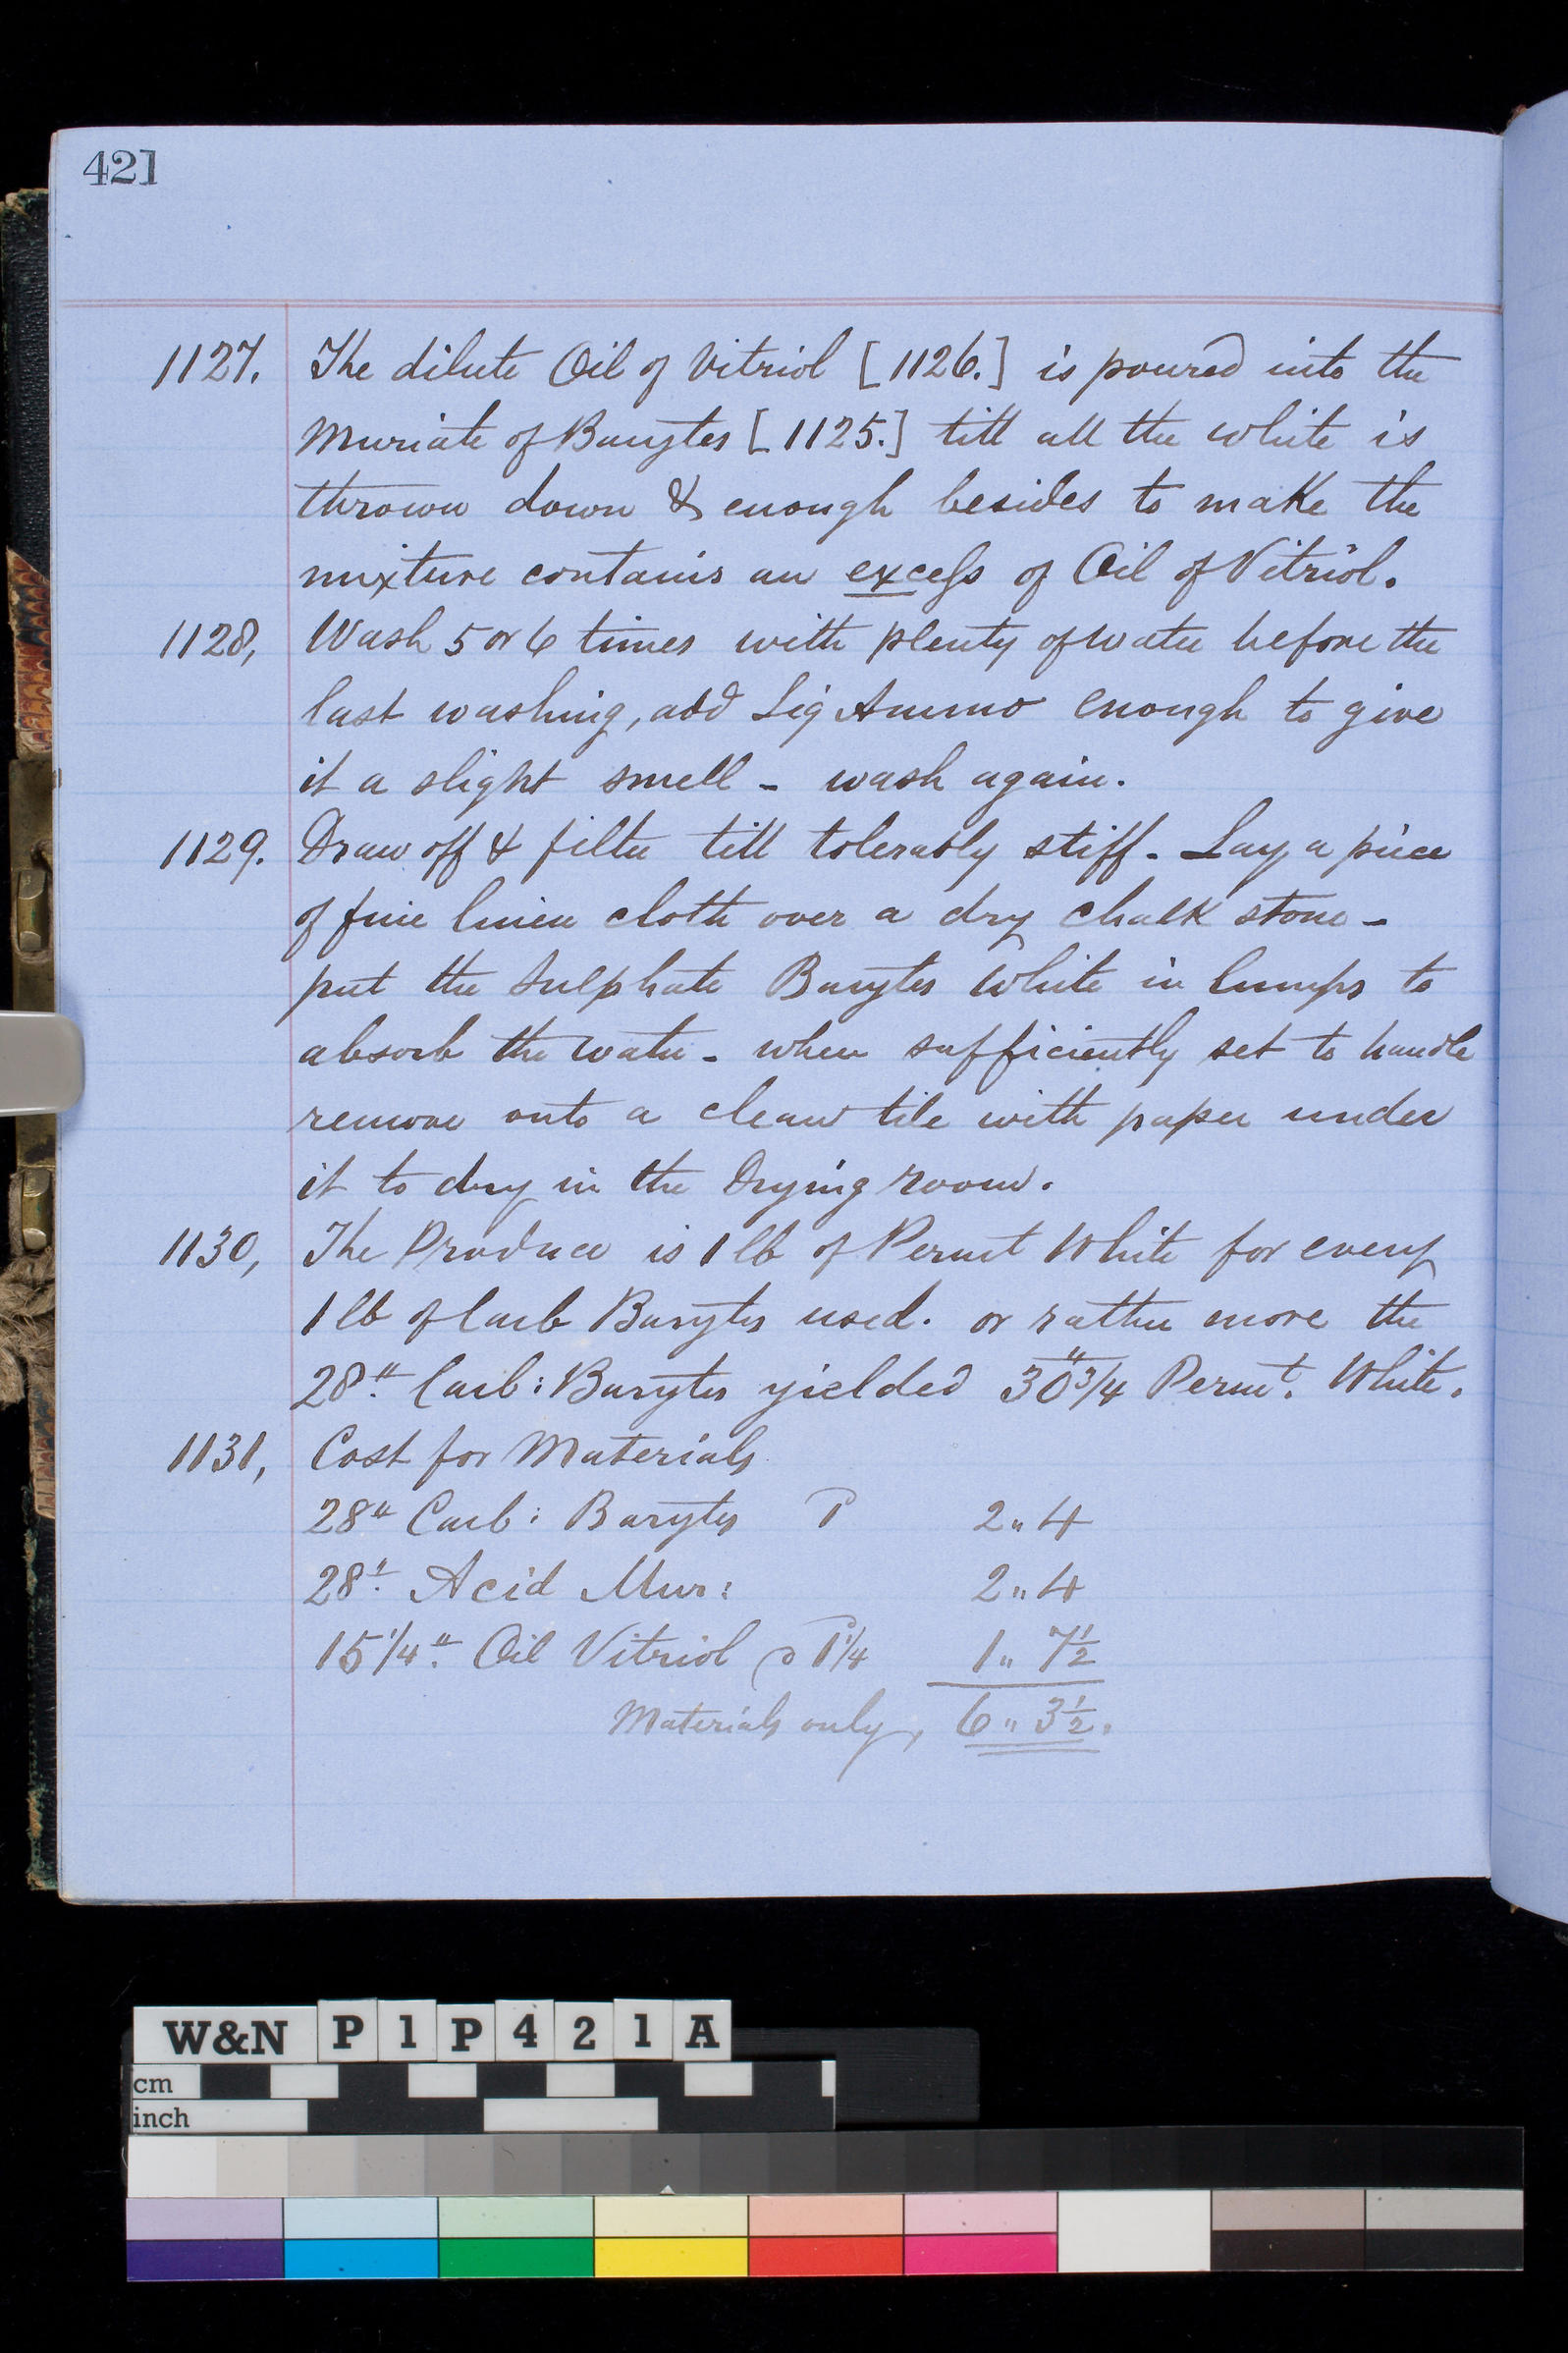 421
1127. The dilute Oil of Vitriol [1126.] is poured into the
Muriate of Barytes [1125.] till all the white is
thrown down & enough besides to make the
mixture contains an excess of Oil of Vitriol.
1128, Wash 5 or 6 times with plenty of water before the
last washing, add Liq Ammo enough to give
it a slight smell - wash again.
1129. Draw off & filter till tolerably stiff - Lay a piece
of fine linen cloth over a dry chalk stone -
put the Sulphate Barytes White in lumps to
absorb the water - when sufficiently set to handle
remove onto a clean tile with paper under
it to dry in the Drying room.
1130, The Produce is 1 lb of Permt White for every
1 lb of Carb Barytes used. or rather more the
28" Carb: Barytes yielded 30 3/4" Permt. White.
1131, Cost for Materials
28" Carb: Barytes 1 2 " 4
28" Acid Mur: 2 " 4
15 1/4" Oil Vitriol @ 1 1/4 1 " 7 1/2
Materials only, 6 " 3 1/2.
W&N P 1 P 4 2 1 A
cm
inch